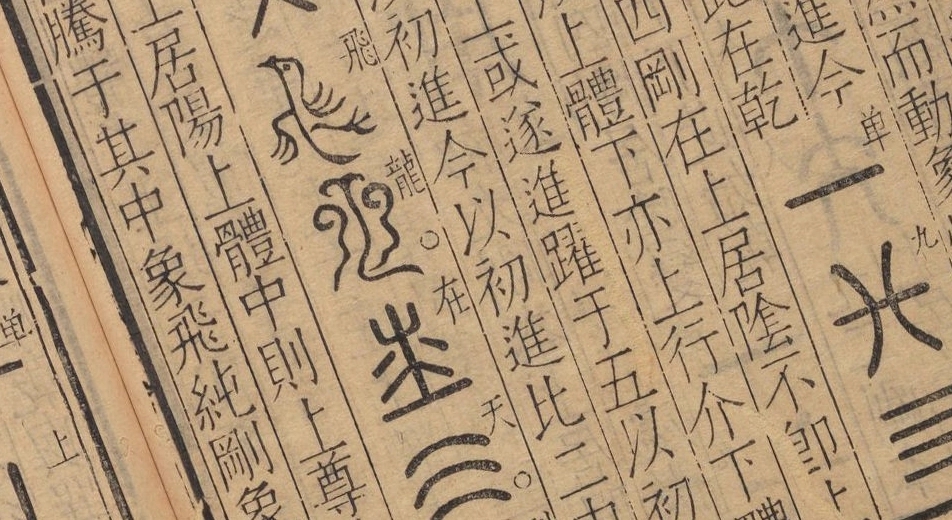 而動象
進今
此在乾
单一九
西剛在上居陰不卽上
上體下亦上行介下體
上或遂進躍于五以初
初進今以初進比二
飛龍在天
上居陽上體中則上尊
騰于其中象飛純剛象
单
上